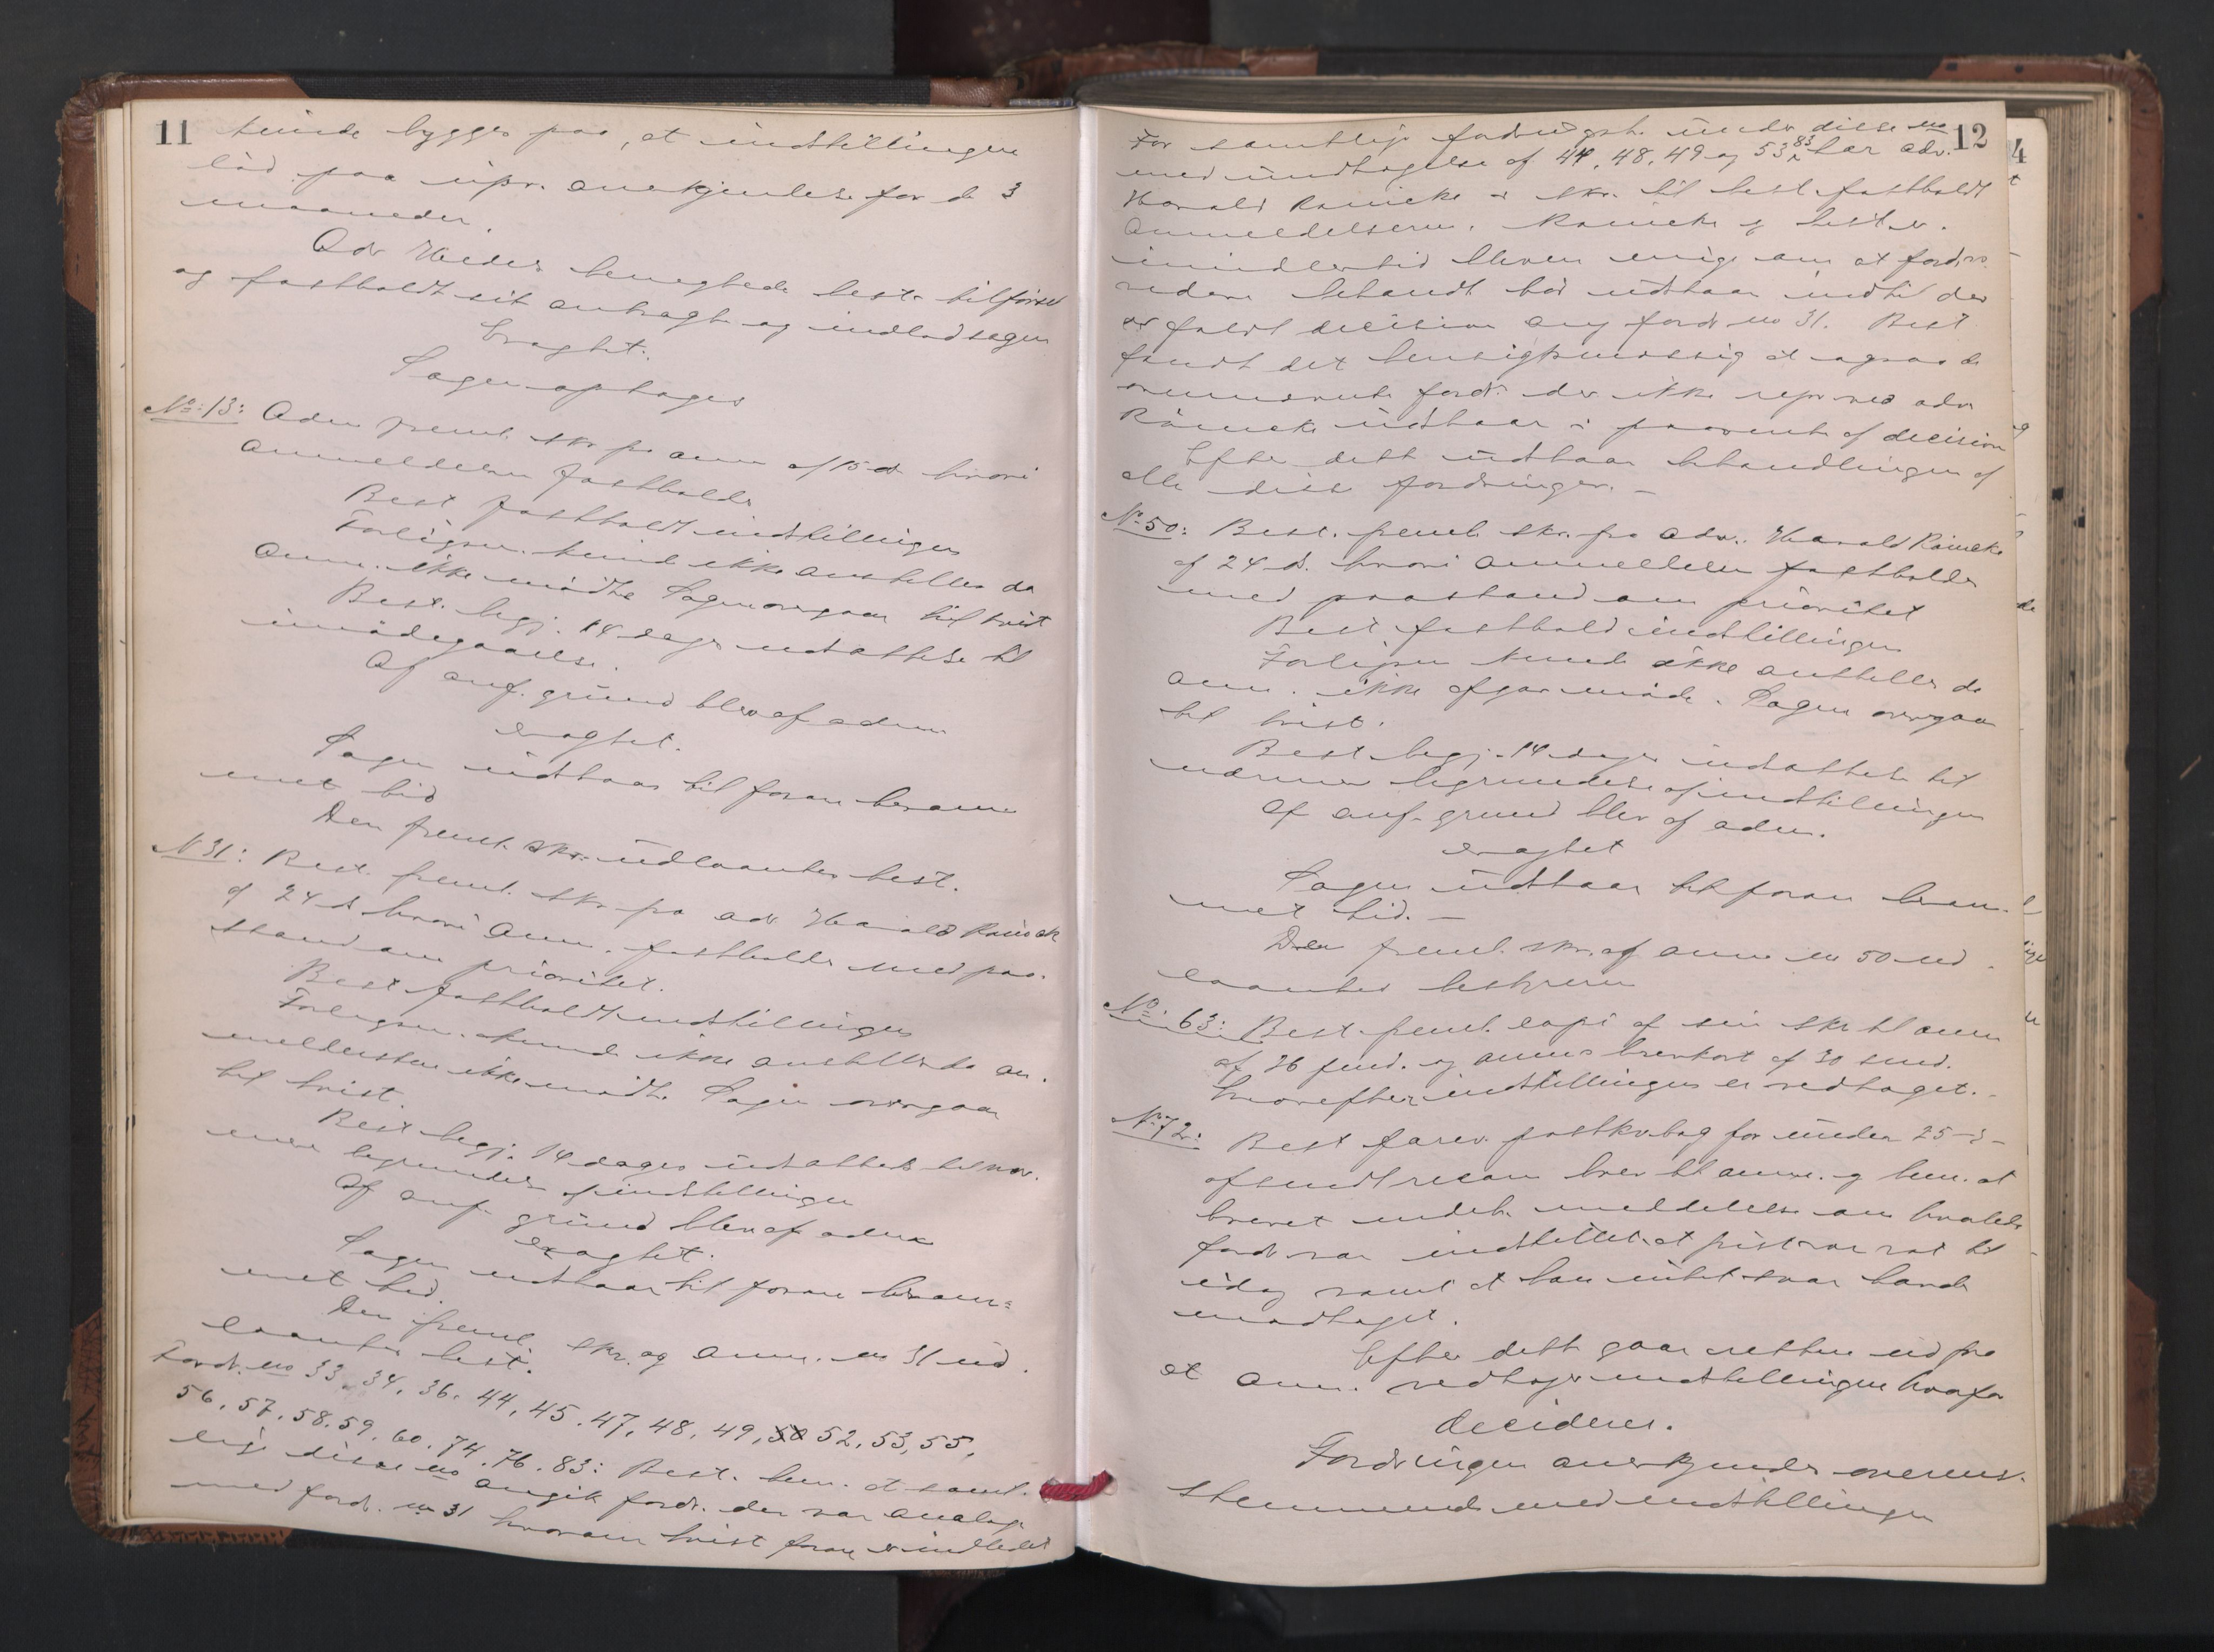 11
kunde bygges paa, at indstillingen
lød paa upr. anerkjendelse for de 3
maaneder.
Adv Heider benegtede best. tilførsel
og fastholdt sit antragte og indlod sagen
Eragtet:
Sagen optages
No: 13: Adm freml. skr fra anm af 15 ds hvori
anmeldelsen fastholdes
Best fastholdt indstillingen
Forligsm. kunde ikke anstilles da
anm. ikke mødte Sagen overgaar til tvist
Best. begj. 14 dages udsættelse til
imødegaaelse.
Af anf. grund blev af adm
eragtet.
Sagen udstaar til foran beram
met tid
Den freml. skr. udlaantes best.
N 31: Best. freml. skr fra adv Harald Römcke
af 24 ds hvori anm. fastholdes med paa-
stand om prioritet.
Best fastholdt indstillingen
Forligsm. kunde ikke anstilles da an.
melderen ikke mødte Sagen overgaar
til tvist.
Best begj. 14 dages udsættelse til nær.
mere begrundelse af indstillingen
Af anf. grund blev af adm
eragtet.
Sagen udstaar til foran beram=
met tid.
Den freml. skr. og anm. no 31 ud.
laantes best.
Fordr. no 33, 34, 36, 44, 45, 47, 48, 49, 50 52, 53, 55,
56, 57, 58. 59. 60. 74. 76. 83: Best. bem. at samt.
lige disse no angik fordr. der var analoge
med fordr. no 31 hvorom tvist foran er indledet
12
For samtlige fordringsh. under disse no
med undtagelse af 44, 48, 49 og 53 83 har adv.
Harald Römcke i skr. til best. fastholdt
anmeldelserne. Römcke og best er
imidlertid bleven enige om at fordr.
videre behandl bør udstaa indtil der
er faldt decision ang fordr no 31. Best
fandt det hensigtsmæssig at ogsaa de
ovennævnte fordr. der ikke repr ved adv
Römcke udstaar i paavente af decision
Efter dette udstaar behandlingen af
alle disse fordringer. -
No 50: Best. freml. skr. fra adv. Harald Römcke
af 24 ds. hvori anmeldelsen fastholdes
med paastand om prioritet
Best. fastholdt indstillingen
Forligsm kunde ikke anstilles da
anm. ikke afgav møde. Sagen overgaar
til tvist.
Best begj. 14 dages udsættelse til
nærmere begrundelse af indstillingen
Af anf. grund blev af adm.
eragtet
Sagen udstaar til foran beram.
met tid. -
Den freml. skr. og anm no 50 ud.
laantes bestyreren
No: 63: Best. freml. copi af sin skr til anm
af 26 ds. og anm's brevkort af 30 ds.
hvorefter indstillingen er vedtaget. -
No 72: Best farev. postkv.bog for under 25-3-
afsendt recom brev til anm. og bem. at
brevet indeh. meddelelse om hvorledes
fordr var indstillet, at frist var sat til
idag samt at han intet svar havde
modtaget.
Efter dette gaar retten ud fra
at anm. vedtager indstillingen hvorfor
decideres.
Fordringen anerkjendes overens.
stemmende med indstillingen